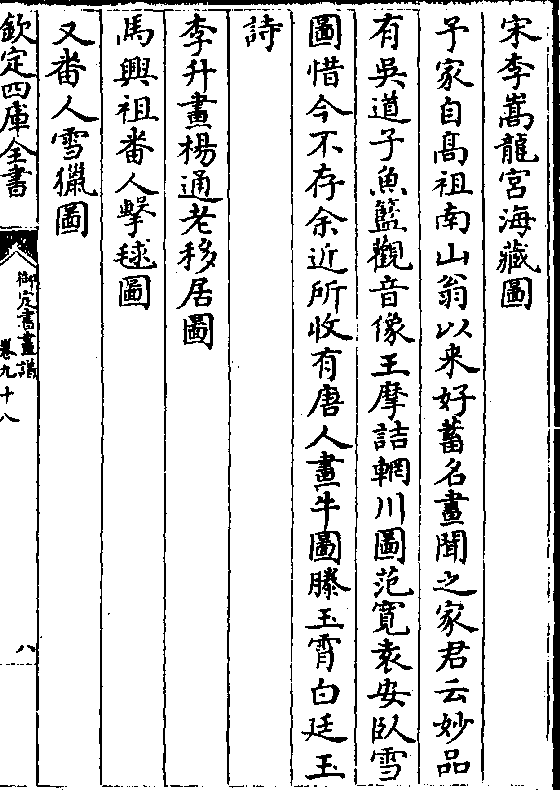 宋李嵩龍宫海藏圖
予家自髙祖南山翁以来好蓄名畫聞之家君云妙品
有吳道子魚籃觀音像王摩詰輞川圖范寛袁安臥雪
圖惜今不存余近所收有唐人畫牛圖滕玉霄白廷玉
詩
李升畫楊通老移居圖
馬興祖番人擊毬圖
又番人雪獵圖
欽定四庫全書
御定書畫譜
卷九十八
八